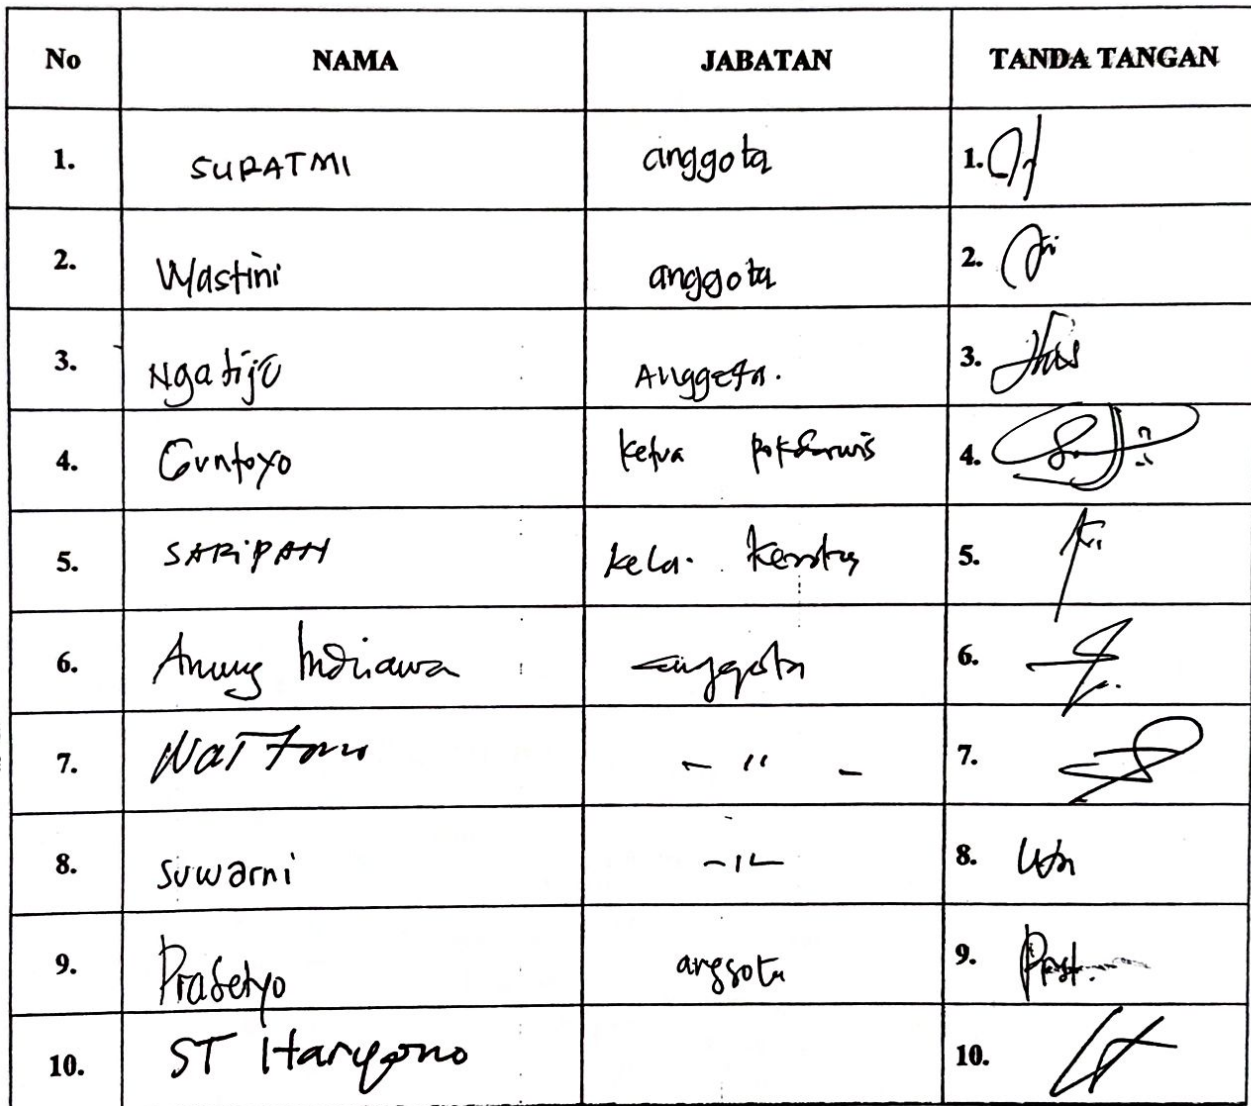 No NAMA JABATAN TANDA TANGAN
1. SURATMI anggota 1.
2. Wastini anggota 2.
3. Ngatijo Anggota. 3.
4. Guntoyo ketua pokdarwis 4.
5. SARiPAH 5.
6. Anung Indriawa anggota 6.
7. - " - 7.
8. suwarni - " - 8.
9. Prasetyo anggota 9. Prast.
10. ST Haryono 10.